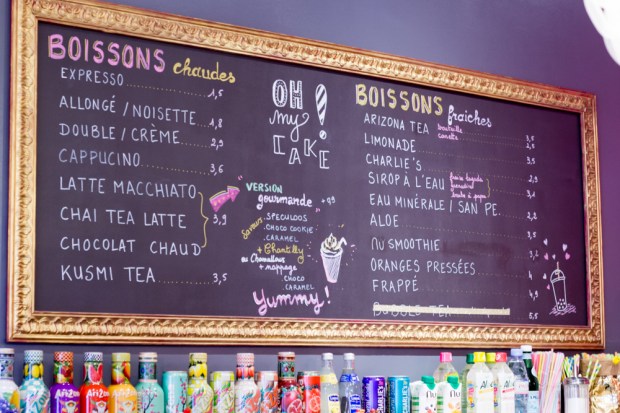 BOISSONS chaudes
EXPRESSO 1,5
ALLONGÉ / NOISETTE 1,8
DOUBLE / CRÈME 2,9
CAPPUCINO 3,6
LATTE MACCHIATO
CHAI TEA LATTE 3,9
CHOCOLAT CHAUD
KUSMI TEA 3,5
OH
my
CAKE
!
VERSION
gourmande + 0,9
Saveurs
SPECULOOS
CHOCO COOKIE
CARAMEL
+ Chantilly
ou Chamallow
+ nappage
CHOCO
CARAMEL
Yummy!
BOISSONS fraîches
ARIZONA TEA bouteille 3,5
canette
LIMONADE
CHARLIE'S
SIROP À L'EAU
EAU MINÉRALE / SAN PE.
ALOE
nu SMOOTHIE
ORANGES PRESSÉES
FRAPPÉ
BUBBLE TEA